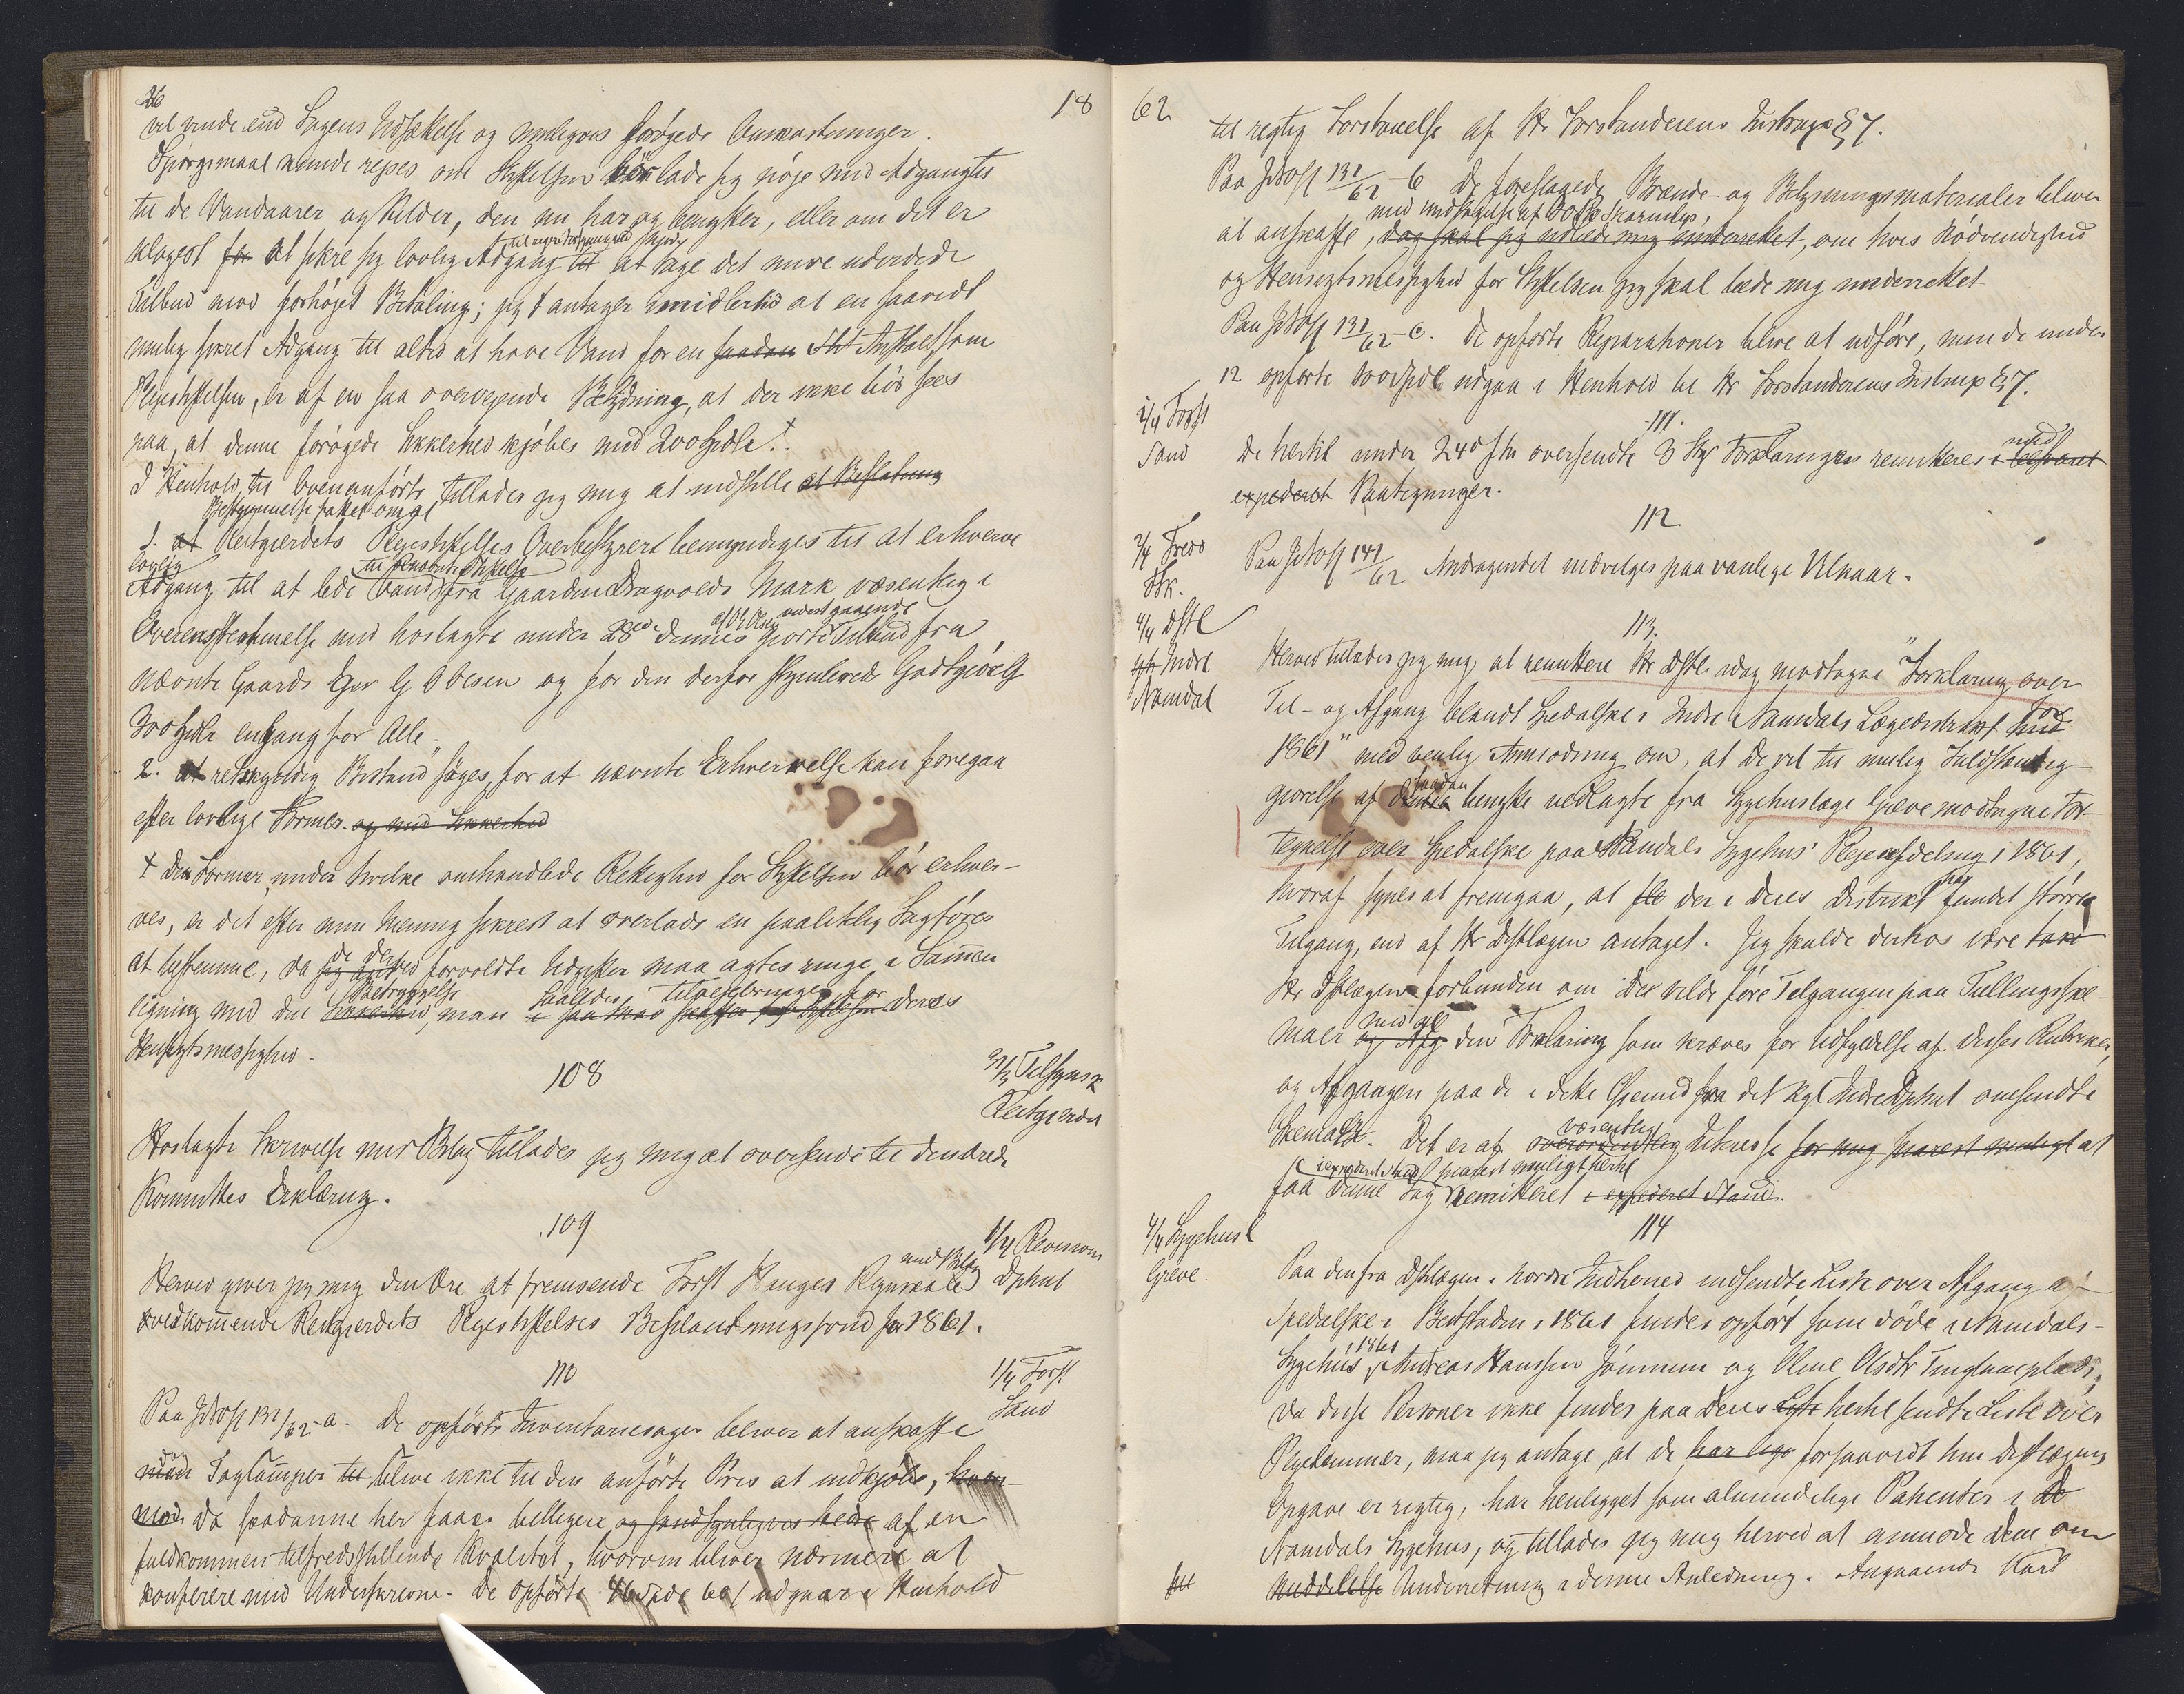 26
18
vil vinde end Sagens Udsættelse og muligvis forøgede Omkostninger.
Spørgsmaal kunde rejses om Stiftelsen bør lade sig nøje med Adgangen
til de Vandaarer og Kilder, den nu har og benytter, eller om det er
klogest for at sikre sig lovlig Adgang til at tage det mere
Tilbud mod forhøjet Betaling; jeg antager imidlertid at en saavidt
mulig sikret Adgang til altid at have Vand for en saadan Anstalt som
Plejestiftelsen, er af en saa overvejende Betydning, at der ikke bør sees
paa, at denne forøgede Sikkerhed kjøbes med 200 Spdlr. †
I Henhold til Ovenanførte tillades jeg mig at indstille at Beslutning
Bestemmelse fattet om at
1. at Reitgjerdets Plejestiftelses Overbestyrer bemyndiges til at erhverve
lovlig
Adgang til at lede Vand fra Gaarden Dragvolds Mark væsentlig i
Overensstemmelse med hoslagte under 28de dennes gjorte Tilbud fra
nævnte Gaards Ejer G Olsen og for den derfor stipulerede Godtgjørelse
300 Spdlr engang for Alle.
2. at retskyndig Bistand søges, for at nævnte Erhvervelse kan foregaa
efter lovlige Former og med Sikkerhed
† Den Former, under hvilke omhandlede Rettighed for Stiftelsen bør erhver-
ves, er det efter min Mening sikrest at overlade en paalidelig Sagfører
at bestemme, da de derved forvoldte Udgifter maa agtes ringe i Sammen
Betryggelse saaledes tilvejebringes for
ligning med den Sikkerhed, man deres
Hensigtsmæssighed.
108
31/3 Tilsynsk
Reitgjerdet
Hoslagte Skrivelse med Bilag tillades jeg mig at oversende til den ærede
Komittes Erklæring.
109
1/4 Revisions
Dptmt
med Bilag
Herved giver jeg mig den Ære at fremsende Forst Hanges Regnskab
vedkommende Reitgjerdets Plejestiftelses Bespisningsfond for 1861.
110
1/4 Forst
Sand
Paa JNo 131/62-a. De opførte Inventariesager bliver at anskaffe
dog
men Taglamper til blive ikke til den anførte Pris at indkjøbe, hvor-
mod da saadanne her faaes billigere og sandsynligvis bedre af en
fuldkommen tilfredsstillende Kvalitet, hvorom bliver nærmere at
konferere med Underskrevne. De opførte udgaar i Henhold
62
til rigtig Forstaaelse af Hr Forstanderens Instrux § 7.
Paa JNo 131/62-b De foreslagede Brænde- og Belysningsmaterialer bliver
at anskaffe, dog skal jeg udbede mig underrettet, om hvis Nødvendighed
og Hensigtsmæssighed for Stiftelsen jeg skal bede mig underrettet
Paa JNo 131/62-c. De opførte Reparationer blive at udføre, men de under
12 opførte udgaa i Henhold til Hr Forstanderens Instrux § 7.
2/4 Forst
Sand
111.
De hertil under 24de f. M. oversendte 3 Stkr Forklaringer remitteres i besvaret
med
expederet Paategninger.
112
2/4 Fredr
Paa JNo 141/62 Andragendet indvilges paa vanlige Vilkaar.
4/4 Dstl
Indre
Namdal
113.
Herved tillades jeg mig at remittere Hr Dstl. idag modtagne "Forklaring over
Til- og Afgang blandt Spedalske i Indre Namdals Lægedistrikt for
1861" med venlig Anmodning om, at De vil til mulig Fuldstændig-
gjørelse af denne benytte vedlagte fra Sygehuslæge Greve modtagne For-
saadan
tegnelse over Spedalske paa Namdals Sygehus' Plejeafdeling i 1861,
hvoraf synes at fremgaa, at der i Deres Distrikt har fundet større
Tilgang, end af Hr Dstlægen antaget. Jeg skulde derhos være
Hr Dstlægen forbunden om De vilde føre Tilgangen paa Tællingsske-
maer og Afg den Forklaring som kræves for Udfyldelse af disses Rubriker,
og Afgangen paa de i dette Øiemed fra det Kgl Indredeptmt oversendte
Skemaer. Det er af væsentlig Interesse for mig snarest muligt at
faa denne Sag remitteret i expederet Stand.
4/4 Sygehusl
Greve.
114
Paa den fra Dstlægen i Nordre Indherred indsendte Liste over Afgang af
Spedalske i Beitstaden i 1861 findes opført som døde i Namdals-
Sygehus i 1861 Andreas Hanssen og Oline Olsdtr
da disse Personer ikke findes paa Deres hertil sendte Liste over
Plejelemmer, maa jeg antage, at de har forsaavidt hin Distrlægens
Opgave er rigtig, har henligget som almindelige Patienter i
Namdals Sygehus, og tillades jeg mig herved at anmode Dem om
Meddelelse Underretning i denne Anledning. Angaaende Kari